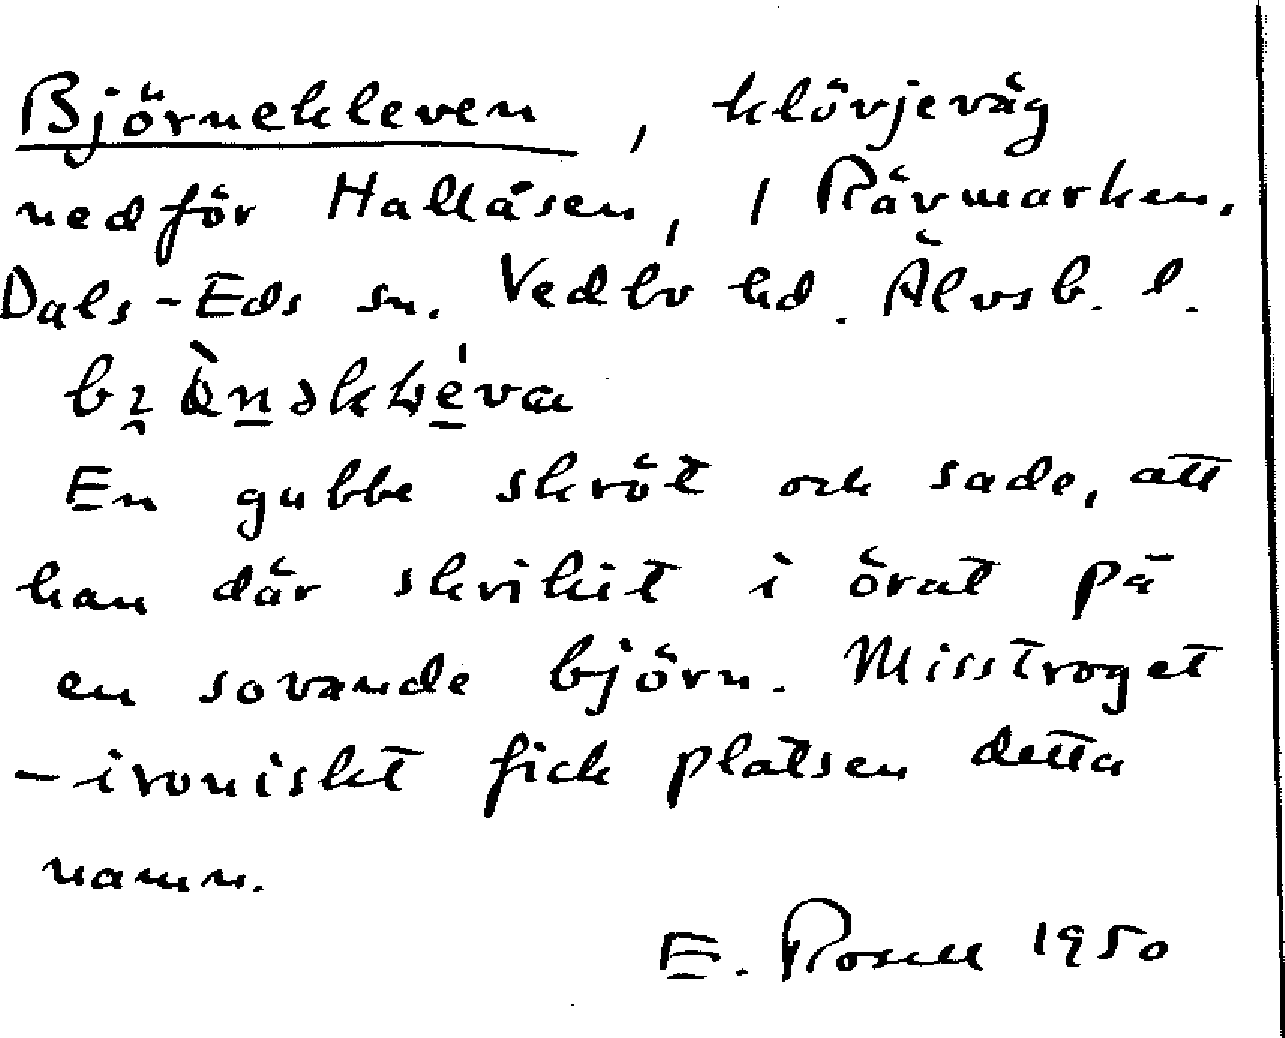 Björnekleven, klövjeväg
nedför Hallåsen, i Rävmarken.
Dals-Eds sn. Vedbo hd. Älvsb. l.
En gubbe skröt och sade, att
han där skrikit i örat på
en sovande björn. Misstroget
-ironiskt fick platsen detta
namn.
E. Rosell 1950